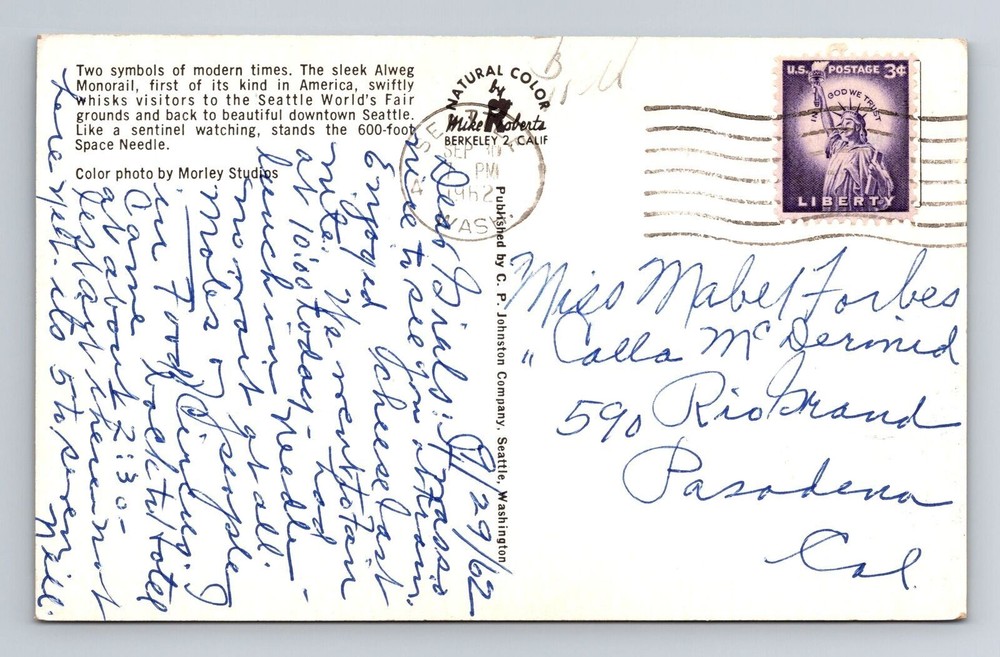 Two symbols of modern times. The sleek Alweg
Monorail, first of its kind in America, swiftly
whisks visitors to the Seattle World's Fair
grounds and back to beautiful downtown Seattle.
Like a sentinel watching, stands the 600-foot
Space Needle.
Color photo by Morley Studios
NATURAL COLOR
by
Mike Roberts
BERKELEY 2, CALIF
SEP
PM
1962
WASH.
U.S. POSTAGE 3¢
IN GOD WE TRUST
LIBERTY
Published by C. P. Johnston Company, Seattle, Washington
9/29/62
Dear Girls: It was so
nice to see you at home.
Enjoyed Ichee last
nite. We went to
at 10:00 today - had
lunch in needle -
no wait at all.
Mobs of people
in Food Circus.
Came back to Hotel
at about 2:30 -
left May there not
here yet - its 5 to seven
Neill.
Miss Mabel Forbes
" Calla McDermid
590 Rio Grand
Pasadena
Cal.